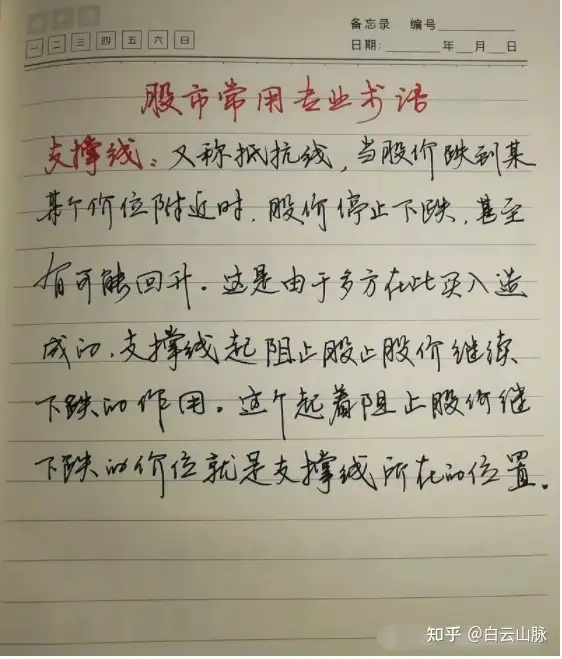 备忘录 编号
一 二 三 四 五 六 日
日期: 年 月 日
股市常用专业术语
支撑线:又称抵抗线,当股价跌到某
某个价位附近时,股价停止下跌,甚至
有可能回升。这是由于多方在此买入造
成的,支撑线起阻止股止股价继续
下跌的作用。这个起着阻止股价继
下跌的价位就是支撑线所在的位置。
知乎 @白云山脉